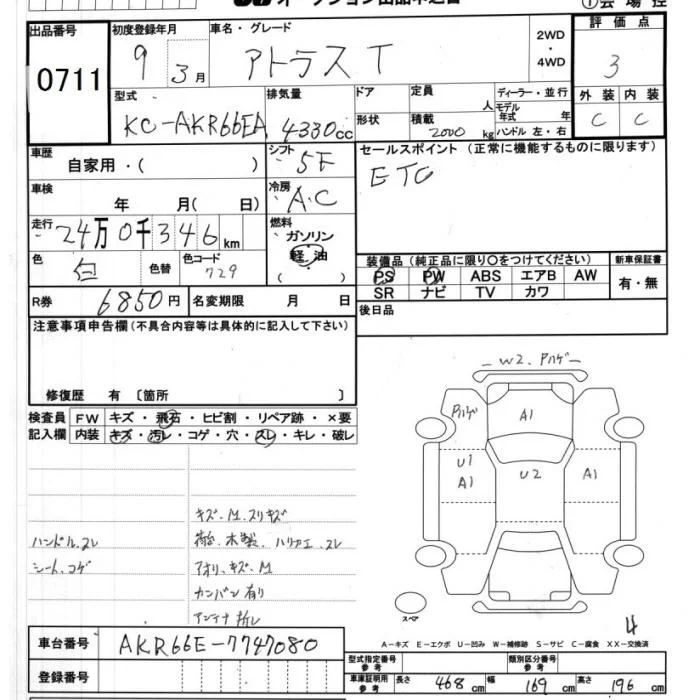 出品番号 初度登録年月 車名・グレード 2WD・4WD 評価点
0711 9 3月 アトラスT 3
型式 排気量 ドア 定員 人 ディーラー・並行 外装 内装
KC-AKR66EA 4330cc 形状 積載 2000kg モデル年式 年 ハンドル 左・右 C C
車歴 自家用・( ) シフト 5F セールスポイント (正常に機能するものに限ります)
車検 年 月( 日) 冷房 A.C ETC
走行 24万0千346km 燃料 ガソリン 軽油 ( )
色 白 色替 色コード 729 装備品 (純正品に限り○をつけてください) 新車保証書
PS PW ABS エアB AW 有・無
SR ナビ TV カワ
R券 6850円 名変期限 月 日 後日品
注意事項申告欄(不具合内容等は具体的に記入して下さい)
修復歴 有 〔箇所 〕
検査員 FW キズ・飛石・ヒビ割・リペア跡・×要
記入欄 内装 キズ・汚レ・コゲ・穴・スレ・キレ・破レ
W2.アハゲ
アハゲ A1
U1 A1 U2 A1
キズ.M.スリキズ
ハンドル.スレ 荷台.木製.ハリカエ.スレ
シート.コゲ アオリ.キズ.M
カンバン有り
アンテナ折レ
スペア
4
A-キズ E-エクボ U-凹み W-補修跡 S-サビ C-腐食 XX-交換済
車台番号 AKR66E-7747080
型式指定番号 参考 類別区分番号 参考
登録番号 車庫証明用 参考 長さ 468cm 幅 169cm 高さ 196cm